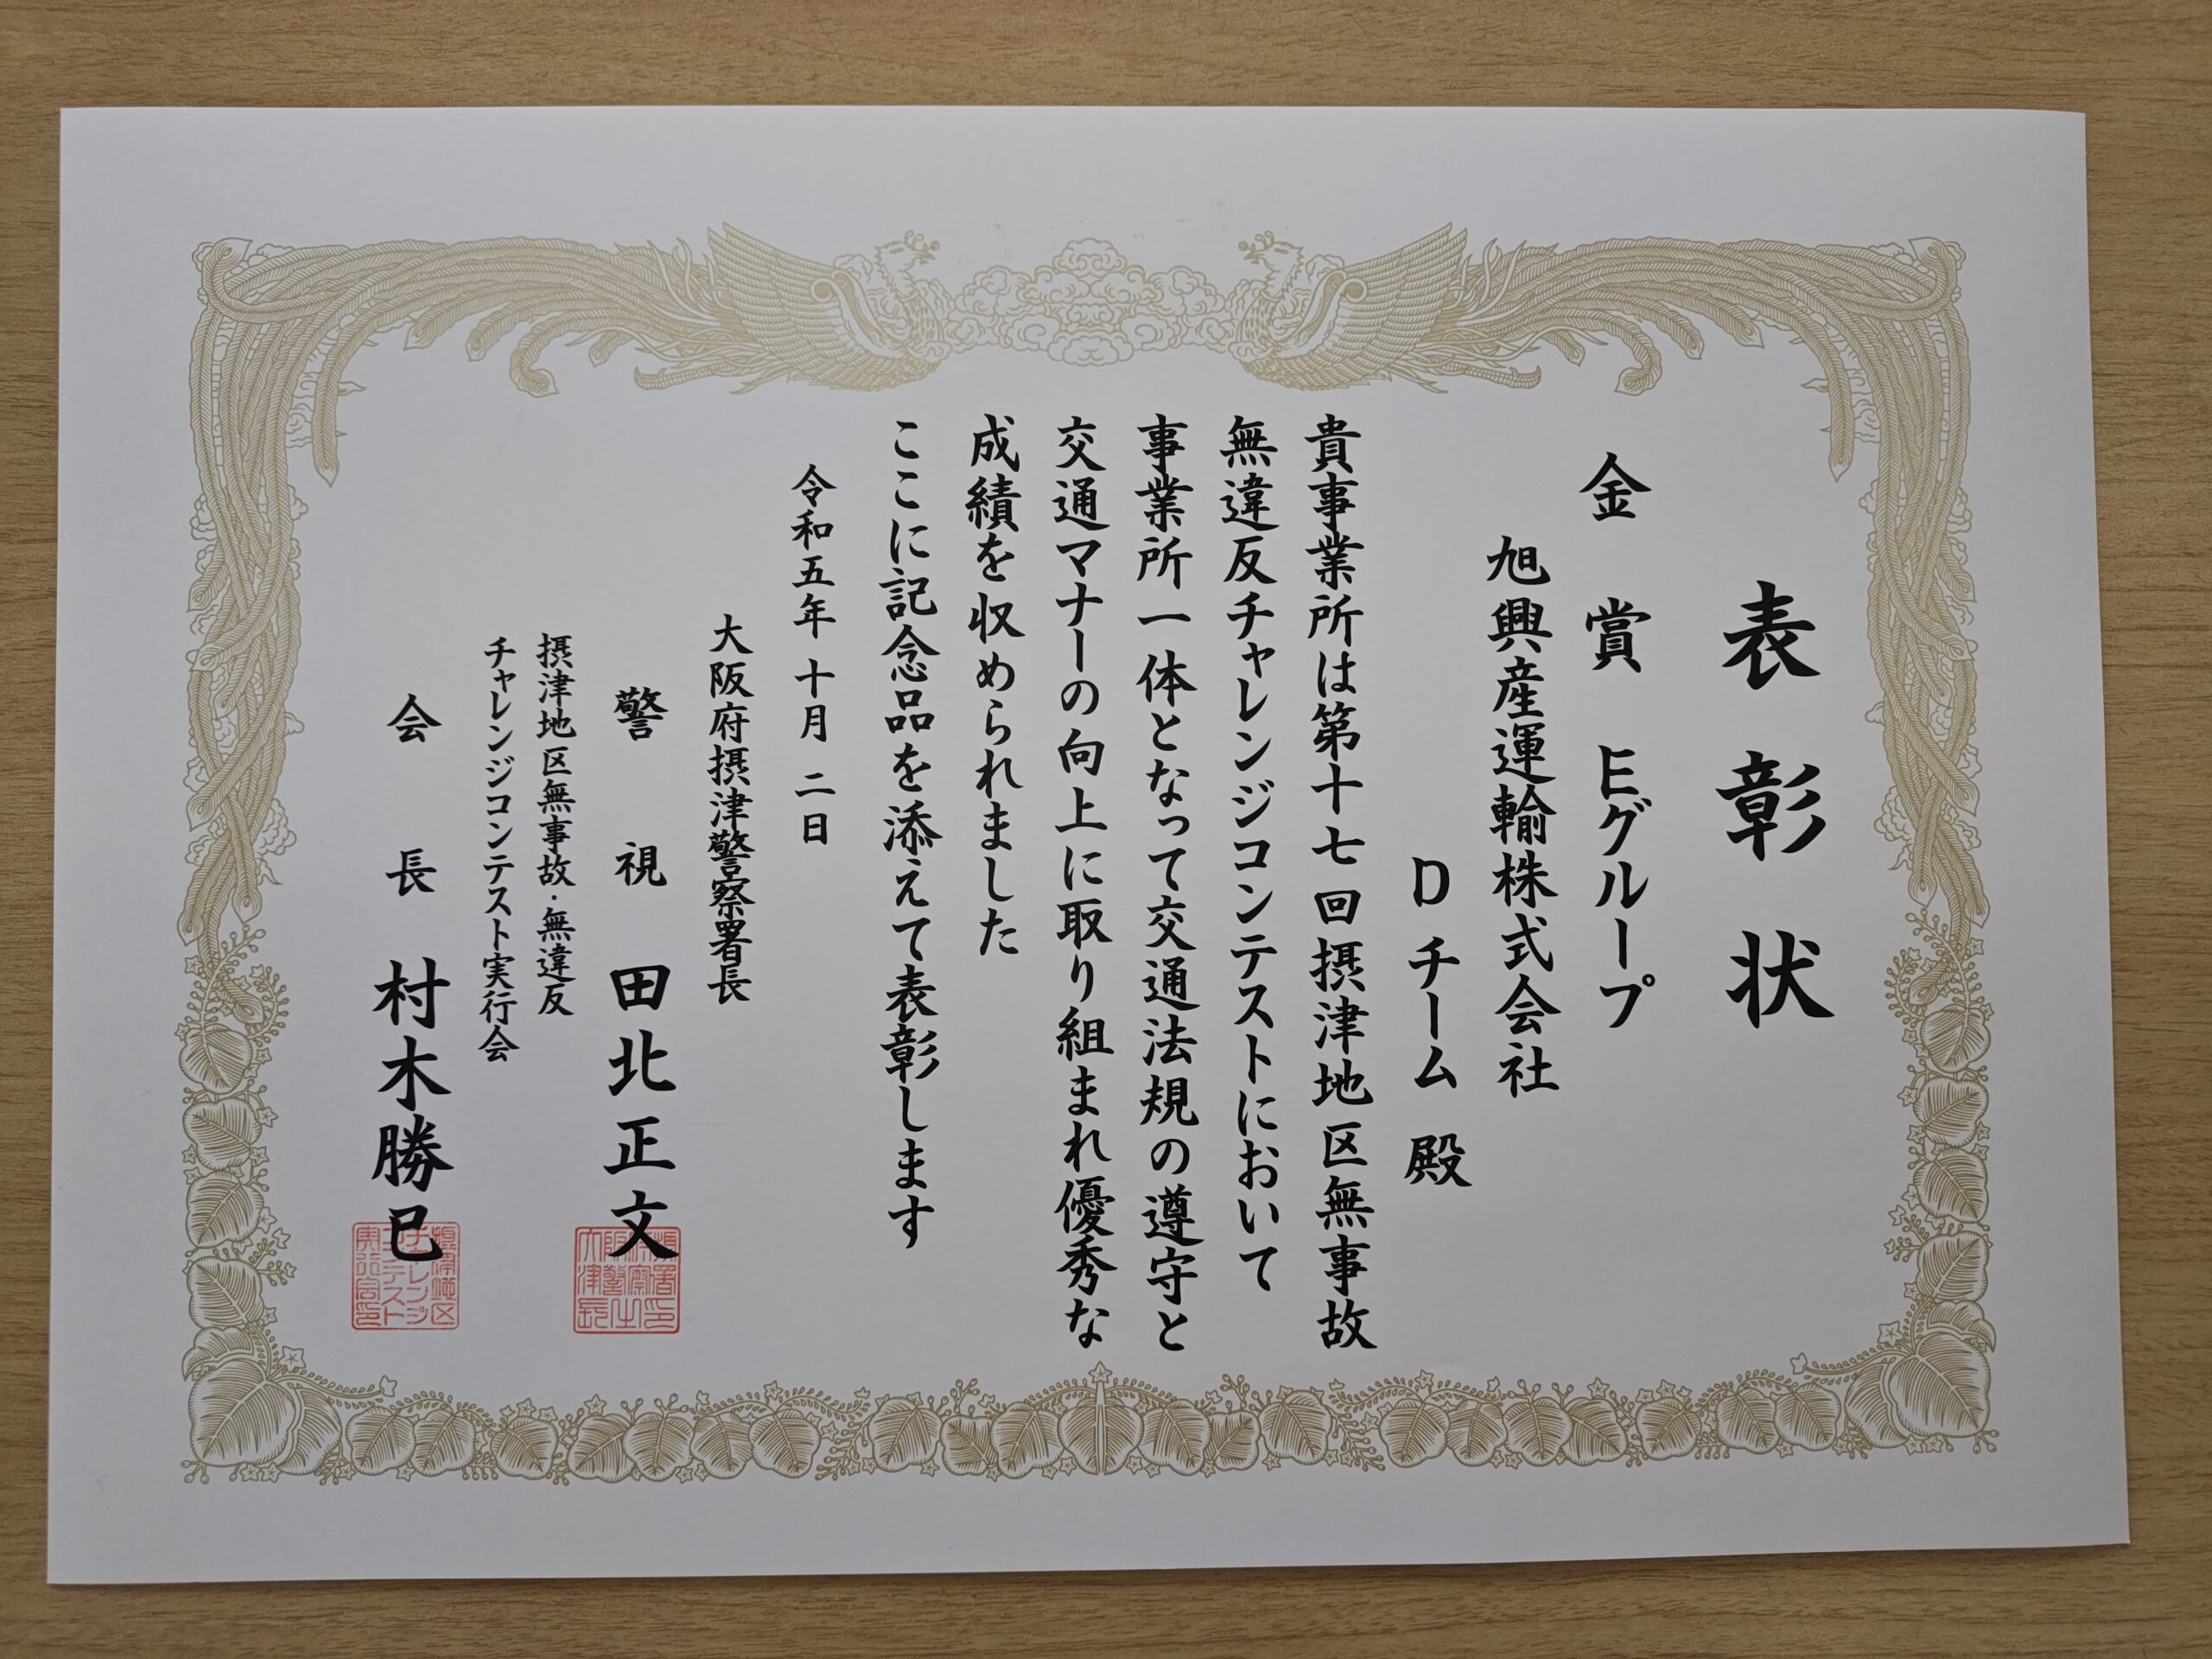 表彰状
金賞 Eグループ
旭興産運輸株式会社
Dチーム 殿
貴事業所は第十七回摂津地区無事故
無違反チャレンジコンテストにおいて
事業所一体となって交通法規の遵守と
交通マナーの向上に取り組まれ優秀な
成績を収められました
ここに記念品を添えて表彰します
令和五年十月二日
大阪府摂津警察署長
警視 田北正文
摂津地区無事故・無違反
チャレンジコンテスト実行会
会長 村木勝巳